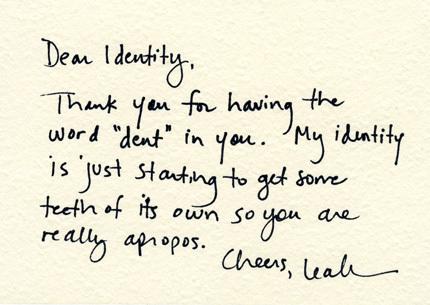 Dear Identity,
Thank you for having the
word "dent" in you. My identity
is just starting to get some
teeth of its own so you are
really apropos.
Cheers, Leah